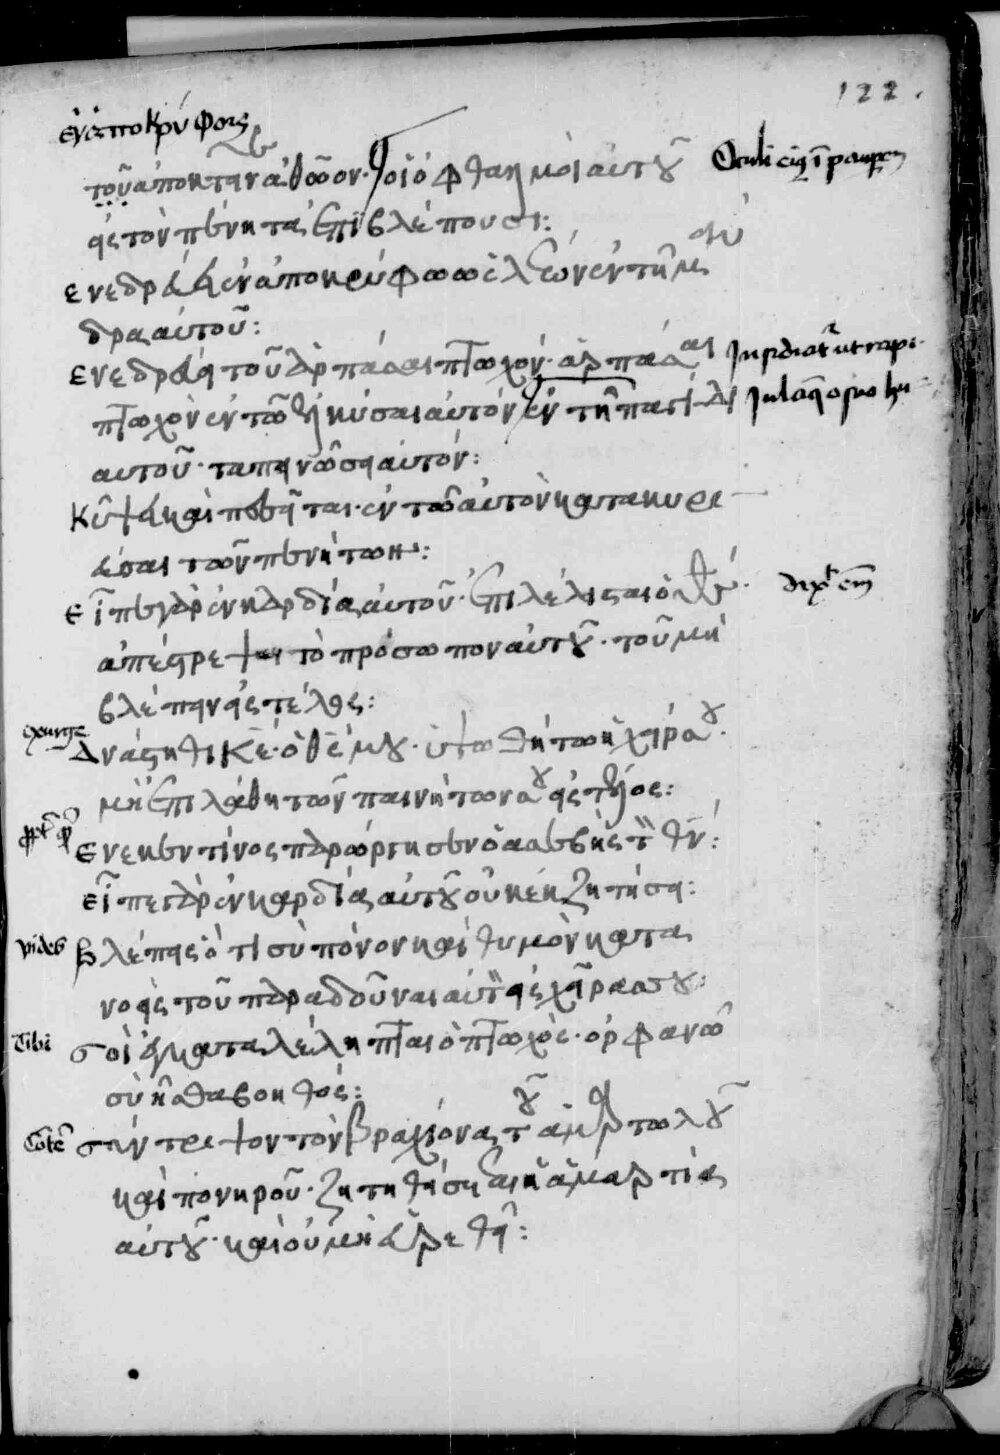 122.
ἐν ἀποκρύφοις
τοῦ ἀποκτεῖναι ἀθῶον· οἱ ὀφθαλμοὶ αὐτοῦ
Oculi eius in pauperem
εἰς τὸν πένητα ἐπιβλέπουσι:
ενεδρεύει ἐν ἀποκρύφω ὡς λέων ἐν τῇ μάν
δρα αὐτοῦ:
ενεδρεύει τοῦ ἁρπάσαι πτωχόν· ἁρπάσαι
Insidiatur ut rapi
πτωχὸν ἐν τῶ ἑλκύσαι αὐτόν ἐν τῇ παγίδι
In laqueo suo hu
αυτοῦ· ταπεινώσει αὐτόν:
Κύψει καὶ πεσεῖται· ἐν τῶ αὐτὸν κατακυρι
εύσαι τῶν πενήτων:
Εἶπε γὰρ ἐν καρδία αὐτοῦ· ἐπιλέλησται ὁ θς·
dixit enim
απέστρεψε τὸ πρόσωπον αὐτοῦ· τοῦ μὴ
βλέπειν εἰς τέλος:
exurge
Ανάστηθι κε ὁ θς μου· ὑψωθήτω ἡ χείρ σου·
μὴ ἐπιλάθη τῶν πενήτων σου εἰς τέλος:
propter quid
Ενεκεν τίνος παρώργισεν ὁ ἀσεβὴς τὸν θν:
εἶπε γὰρ ἐν καρδία αὐτοῦ οὐκ ἐκζητήσει:
vides
Βλέπεις ὅτι σὺ πόνον καὶ θυμὸν κατα
νοεῖς τοῦ παραδοῦναι αὐτὸν εἰς χεῖρας σου:
Tibi
σοὶ ἐγκαταλέλειπται ὁ πτωχός· ὀρφανῶ
σὺ ἦσθα βοηθός:
Conte
σύντριψον τὸν βραχίονα τοῦ ἁμαρτωλοῦ
καὶ πονηροῦ· ζητηθήσεται ἡ ἁμαρτία
αὐτοῦ· καὶ οὐ μὴ εὑρεθῇ: